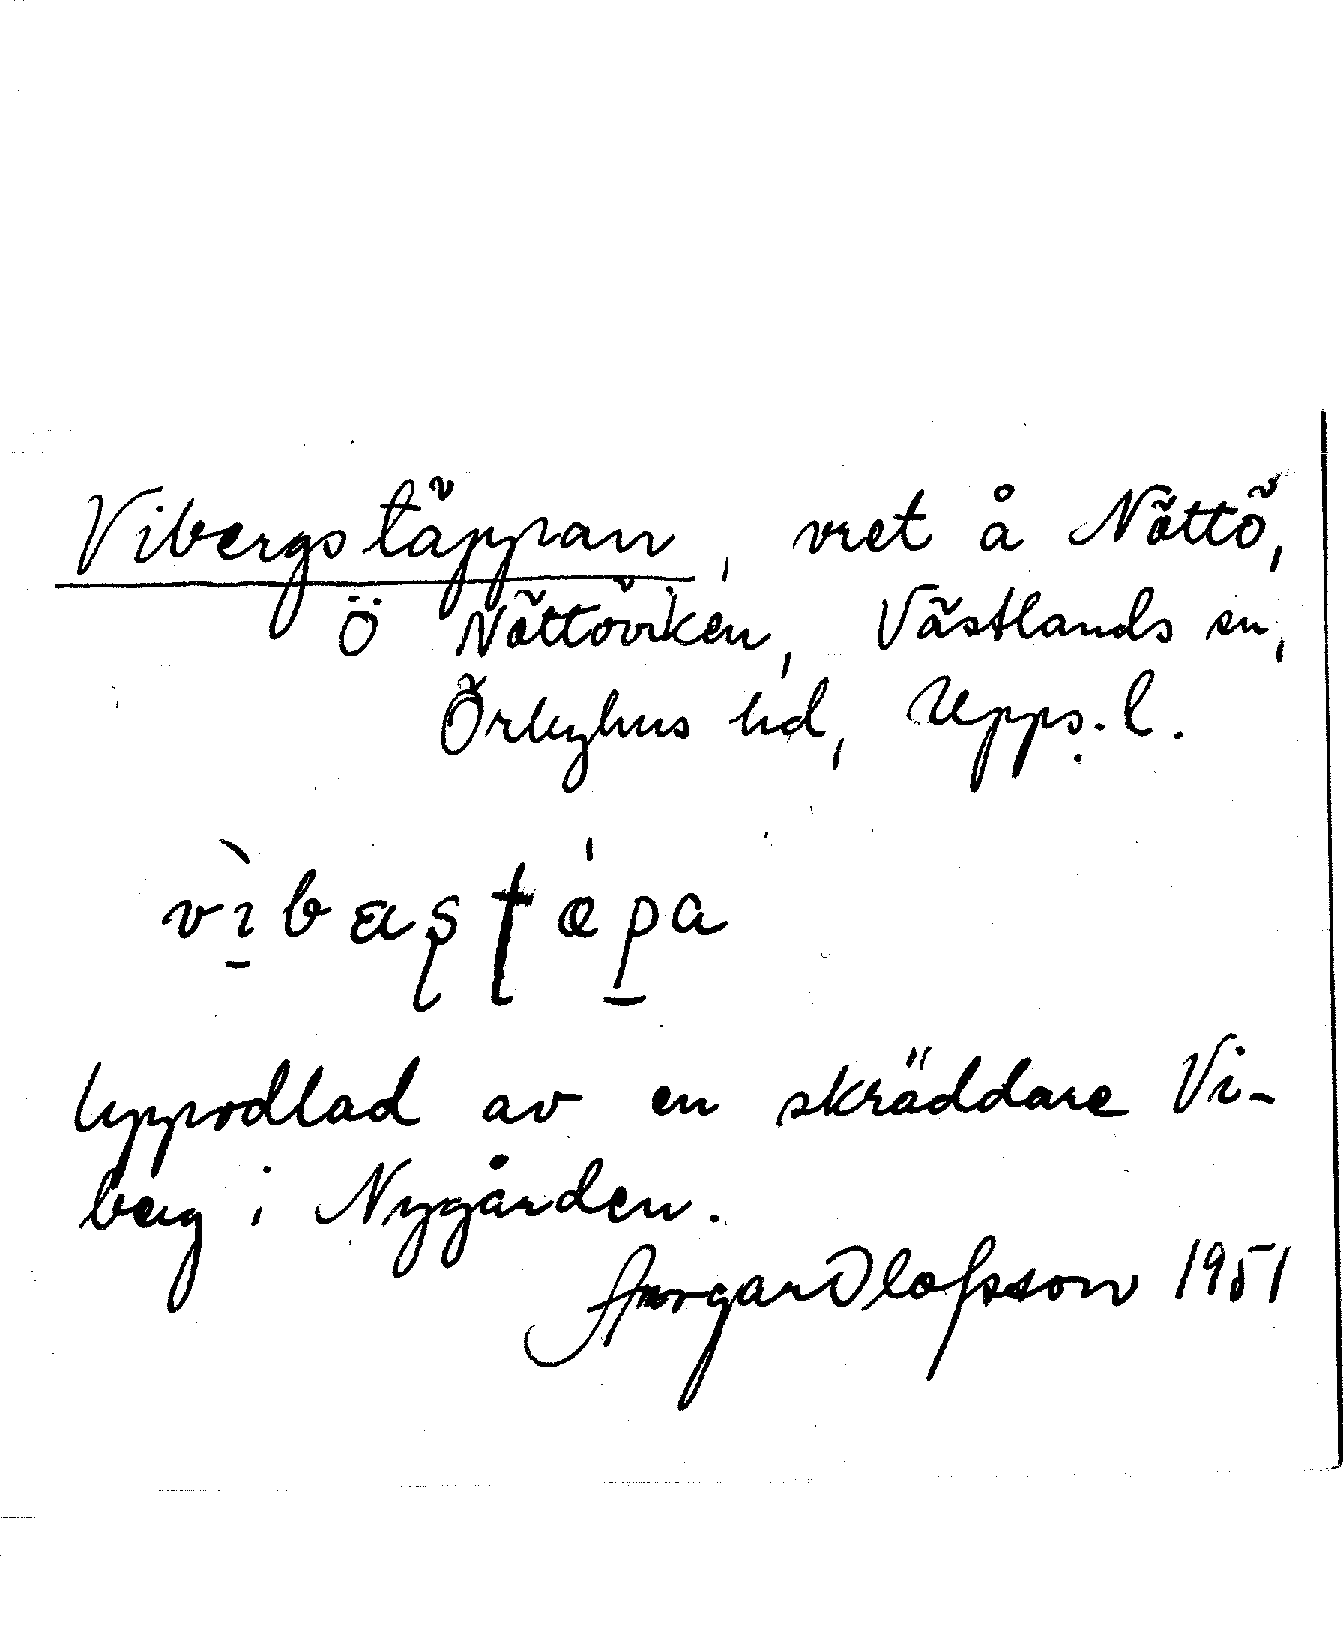 Vibergstäppan, vret å Nöttö,
Ö Nöttöviken, Västlands sn,
Örbyhus hd, Upps. l.
Uppodlad av en skräddare Vi-
berg i Nygården.
Ansgar Olofsson 1951